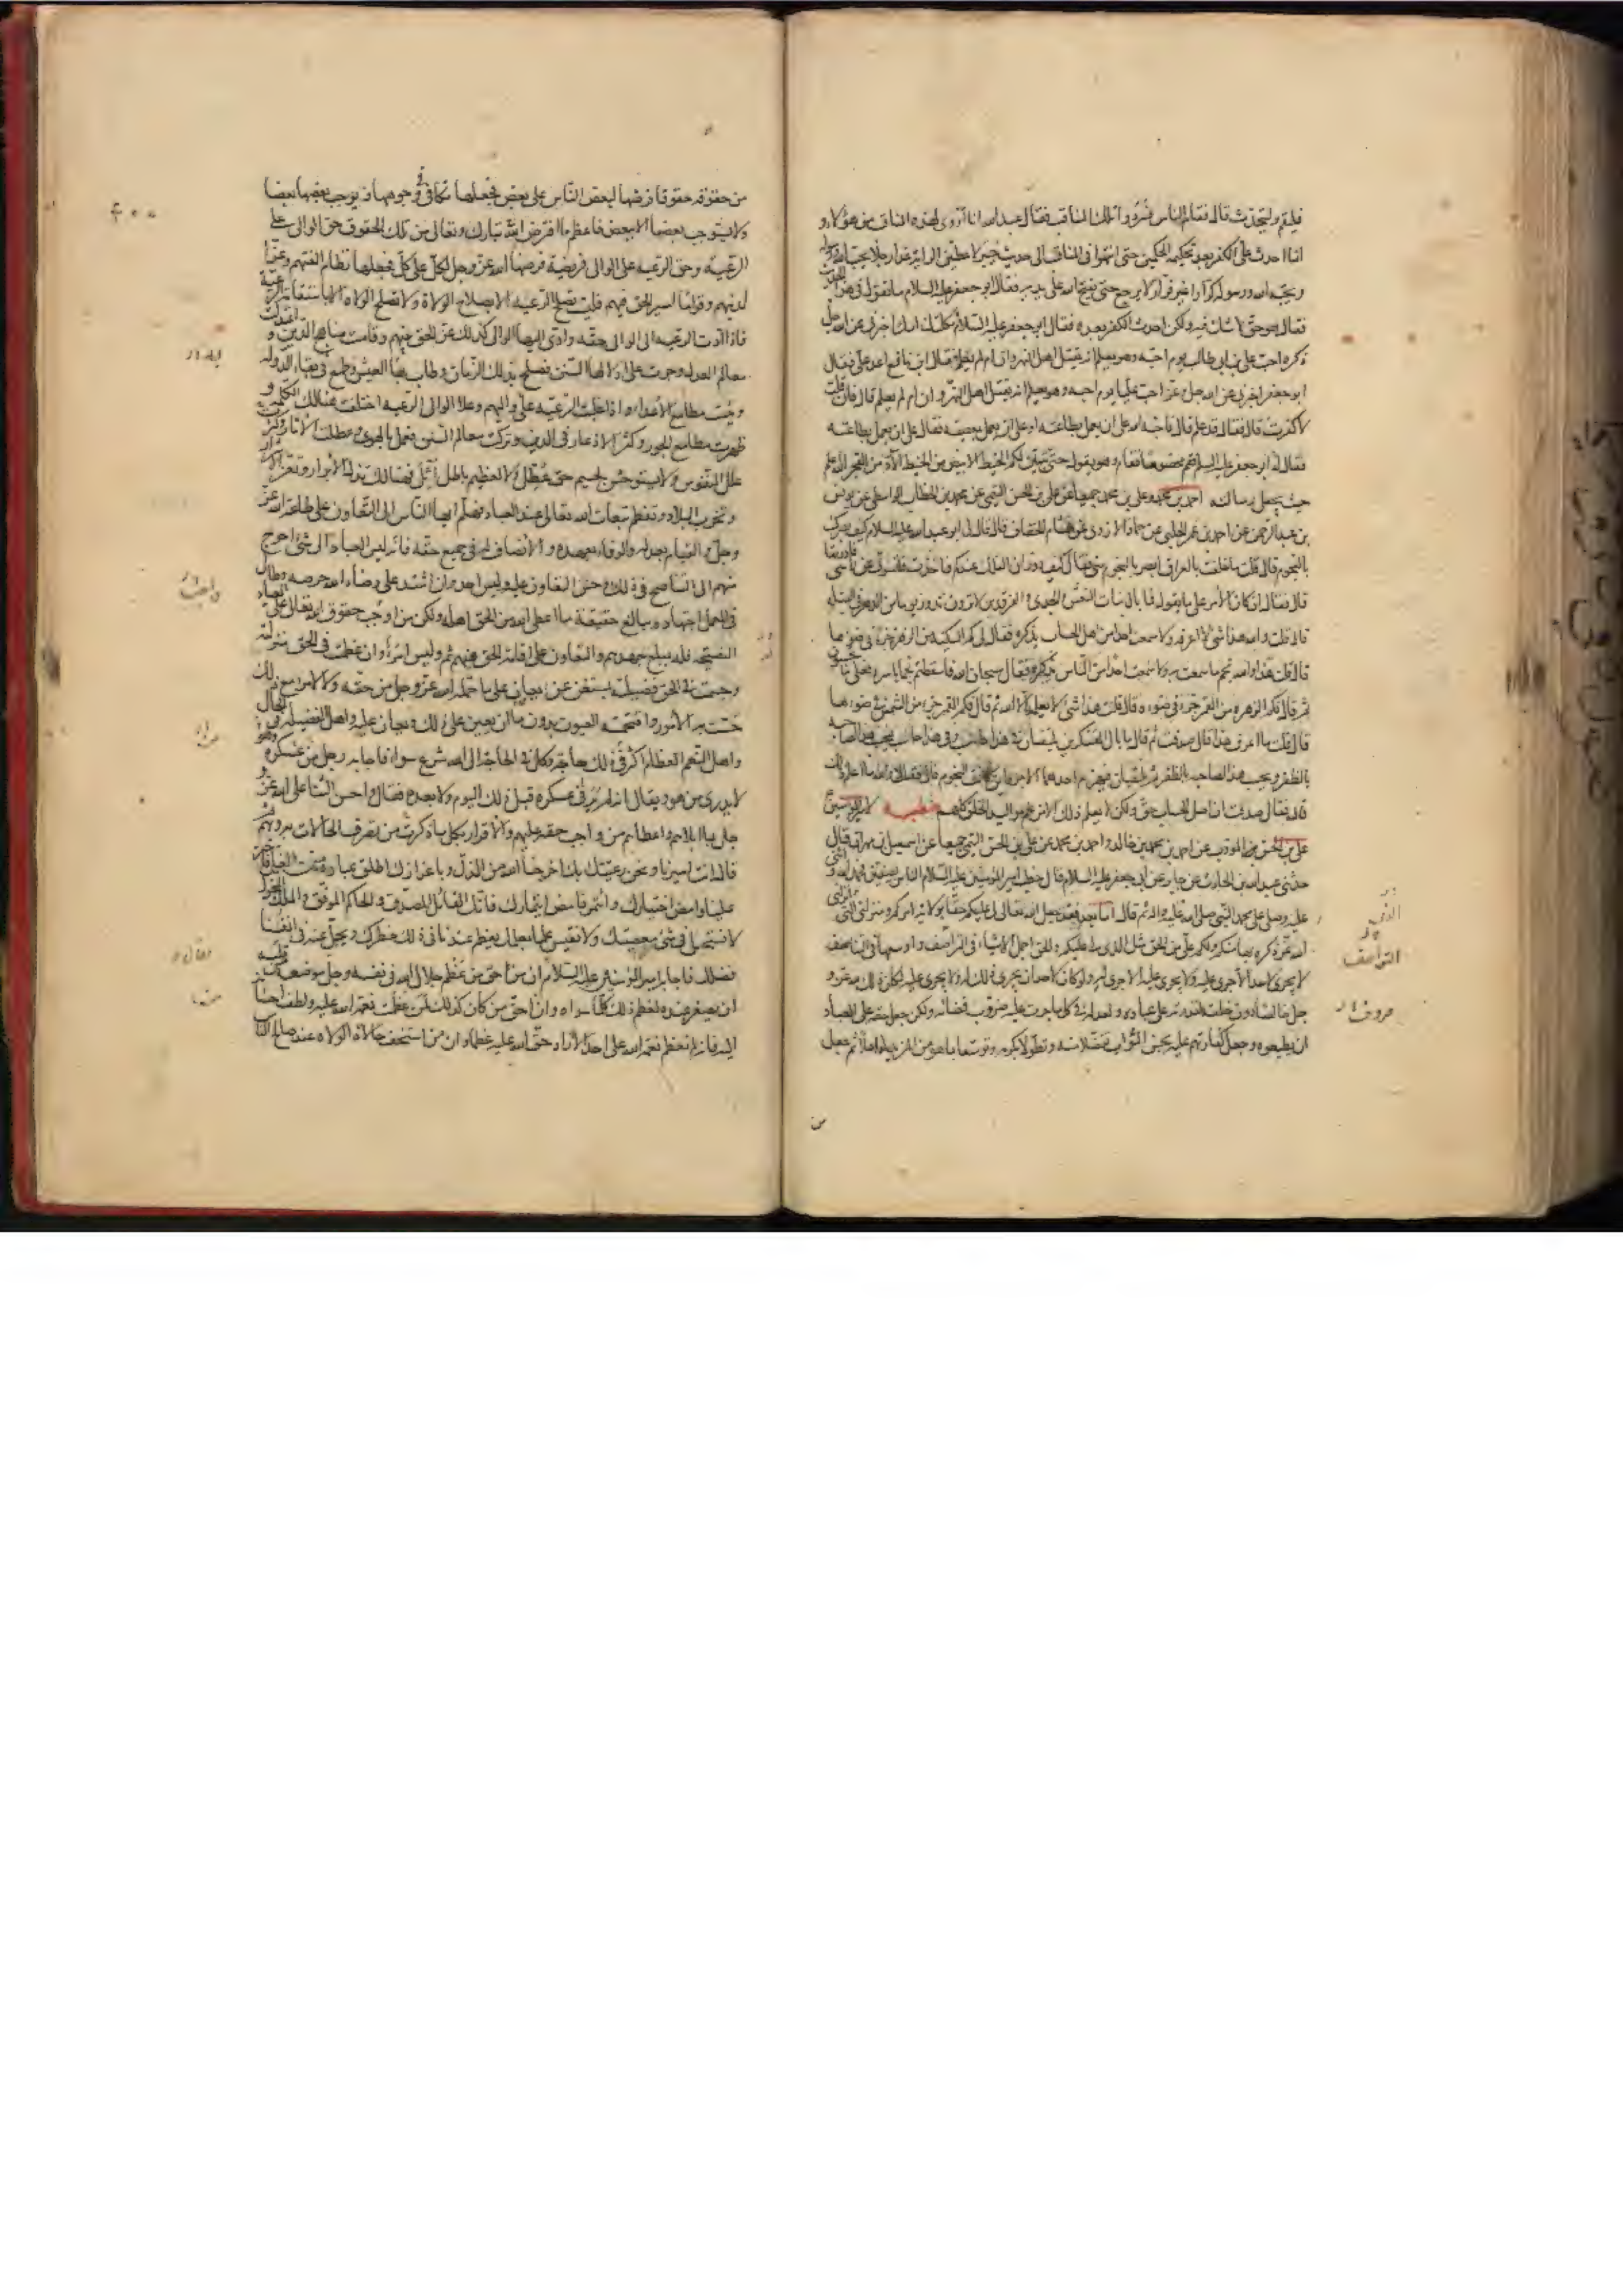 فليقم وليتحدث قال فقام الناس فسردوا تلك المناقب فقال عبد الله انا اروى لهذه المناقب من هؤلاء و
انما احدث على الكفر بعد تحكيمه الحكمين حتى انتهوا فى المناقب الى حديث خيبر لاعطين الراية غدا رجلا يحب الله ورسوله
ويحبه الله ورسوله كرارا غير فرار لا يرجع حتى يفتح الله على يديه فقال ابو جعفر عليه السلام ما تقول فى هذا الحديث
فقال هو حق لا شك فيه ولكن احدث الكفر بعده فقال ابو جعفر عليه السلام ثكلتك امك اخبرنى عن الله جل
ذكره احب على بن ابى طالب يوم احبه وهو يعلم انه يقتل اهل النهروان ام لم يعلم فقال ابن نافع اعد على فقال
ابو جعفر اخبرنى عن الله جل عز احب عليا يوم احبه وهو يعلم انه يقتل اهل النهروان ام لم يعلم قال فان قلت
لا كفرت قال فقال قد علم قال فاحبه الله على ان يعمل بطاعته او على ان يعمل بمعصيته فقال على ان يعمل بطاعته
فقال له ابو جعفر عليه السلم فقم مخصوما فقام وهو يقول حتى يتبين لكم الخيط الابيض من الخيط الاسود من الفجر الله اعلم
حيث يجعل رسالته احمد بن محمد وعلى بن محمد جميعا عن على بن الحسن التيمى عن محمد بن الخطاب الواسطى عن يونس
بن عبد الرحمن عن احمد بن عمر الحلبى عن حماد الازدى عن هشام الخفاف قال قال لى ابو عبد الله عليه السلام كيف بصرك
بالنجوم قال قلت ما خلفت بالعراق ابصر بالنجوم منى فقال كيف دوران الفلك عندكم فاخذت قلنسوتى عن راسى فادرتها
قال فقال ان كان الامر على ما تقول فما بال بنات النعش والجدى والفرقدين لا يرون تدور يوما من الدهر فى القبلة
قال قلت والله هذا شئ لا اعرفه ولا سمعت احدا من اهل الحساب يذكره فقال لى كم السكينة من الزهرة جزءا فى ضوءها
قال قلت هذا والله نجم ما سمعت به ولا سمعت احدا من الناس يذكره فقال سبحان الله فاسقطتم نجما باسره فعلى ما تحسبون
ثم قال فكم الزهرة من القمر جزءا فى ضوءه قال قلت هذا شئ لا يعلمه الا الله ثم قال فكم القمر جزءا من الشمس فى ضوءها
قال قلت ما اعرف هذا قال صدقت ثم قال ما بال العسكرين يلتقيان فى هذا حاسب وفى هذا حاسب فيحسب هذا لصاحبه
بالظفر ويحسب هذا لصاحبه بالظفر ثم يلتقيان فيهزم احدهما الاخر فاين كانت النجوم قال فقلت لا والله ما اعلم ذلك
قال فقال صدقت ان اصل الحساب حق ولكن لا يعلم ذلك الا من علم مواليد الخلق كلهم خطبة لامير المؤمنين ع
على بن الحسن المؤدب عن احمد بن محمد بن خالد واحمد بن محمد عن على بن الحسن التيمى جميعا عن اسمعيل بن مهران قال
حدثنى عبد الله بن الحارث عن جابر عن ابى جعفر عليه السلام قال خطب امير المؤمنين عليه السلام الناس بصفين فحمد الله واثنى
عليه وصلى على محمد النبى صلى الله عليه واله ثم قال اما بعد فقد جعل الله تعالى لى عليكم حقا بولاية امركم ومنزلتى التى انزلنى
الله عز ذكره بها منكم ولكم على من الحق مثل الذى لى عليكم والحق اجمل الاشياء فى التراصف واوسعها فى التناصف
لا يجرى لاحد الا جرى عليه ولا يجرى عليه الا جرى له ولو كان لاحد ان يجرى ذلك له ولا يجرى عليه لكان ذلك لله عز و
جل خالصا دون خلقه لقدرته على عباده ولعدله فى كل ما جرت عليه ضروب قضائه ولكن جعل حقه على العباد
ان يطيعوه وجعل كفارتهم عليه بحسن الثواب تفضلا منه وتطولا بكرمه وتوسعا بما هو من المزيد له اهلا ثم جعل
التواصف
صروف
من
من حقوقه حقوقا فرضها لبعض الناس على بعض فجعلها تكافى فى وجوهها ويوجب بعضها بعضا
ولا يستوجب بعضها الا ببعض فاعظم ما افترض الله تبارك وتعالى من تلك الحقوق حق الوالى على
الرعية وحق الرعية على الوالى فريضة فرضها الله عز وجل لكل على كل فجعلها نظام الفتهم وعزا
لدينهم وقواما لسير الحق فيهم فليست تصلح الرعية الا بصلاح الولاة ولا تصلح الولاة الا باستقامة الرعية
فاذا ادت الرعية الى الوالى حقه وادى اليها الوالى كذلك عز الحق بينهم وقامت مناهج الدين و اعتدلت
معالم العدل وجرت على اذلالها السنن فصلح بذلك الزمان وطاب بها العيش وطمع فى بقاء الدولة
ويئست مطامع الاعداء واذا غلبت الرعية على واليهم وعلا الوالى الرعية اختلفت هنالك الكلمة و
ظهرت مطامع الجور وكثر الادغال فى الدين وتركت معالم السنن فعمل بالهوى وعطلت الاثار وكثر
علل النفوس ولا يستوحش لجسيم حق عطل ولا لعظيم باطل اثل فهنالك تذل الابرار وتعز الاشرار
وتخرب البلاد وتعظم تبعات الله تعالى عند العباد فهلم ايها الناس الى التعاون على طاعة الله عز
وجل والقيام بعدله والوفاء بعهده والانصاف له فى جميع حقه فانه ليس العباد الى شئ احوج
منهم الى التناصح فى ذلك وحسن التعاون عليه وليس احد وان اشتد على رضاء الله حرصه وطال
فى العمل اجتهاده ببالغ حقيقة ما اعطى الله من الحق اهله ولكن من واجب حقوق الله تعالى على العباد
النصيحة له بمبلغ جهدهم والتعاون على اقامة الحق فيهم ثم وليس امرؤ وان عظمت فى الحق منزلته
وجسمت فى الحق فضيلته بمستغن عن ان يعان على ما حمله الله عز وجل من حقه ولا لامرئ مع ذلك
خسئت به الامور واقتحمته العيون بدون ما ان يعين على ذلك ويعان عليه واهل الفضيلة فى الحال
واهل النعم العظام اكثر فى ذلك حاجة وكل فى الحاجة الى الله شرع سواء فاجابه رجل من عسكره
لا يدرى من هو ويقال انه لم ير فى عسكره قبل ذلك اليوم ولا بعده فقام واحسن الثناء على الله عز و
جل بما ابلاهم واعطاهم من واجب حقه عليهم والاقرار بكل ما ذكرت من تصرف الحالات به وبهم
قال انت اميرنا ونحن رعيتك بك اخرجنا الله من الذل وباعزازك اطلق عباده من الغل فاختر
علينا وامض اختيارك وائتمر فامض ائتمارك فانك القائل المصدق والحاكم الموفق والملك المخول
لا نستحل فى شئ معصيتك ولا نقيس علما بعلمك يعظم عندنا فى ذلك خطرك ويجل عنه فى انفسنا
فضلك فاجابه امير المؤمنين عليه السلام ان من حق من عظم جلال الله فى نفسه وجل موضعه من قلبه
ان يصغر عنده لعظم ذلك كل ما سواه وان احق من كان كذلك لمن عظمت نعمة الله عليه ولطف احسانه
اليه فانه لم تعظم نعمة الله على احد الا زاد حق الله عليه عظما وان من اسخف حالات الولاة عند صالح الناس